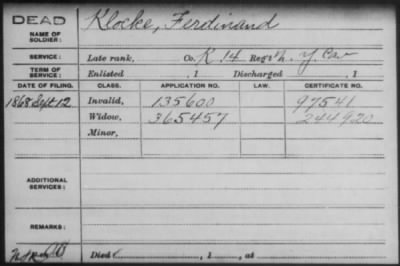 DEAD
NAME OF SOLDIER: Klocke, Ferdinand
SERVICE: Late rank, Co. K 14 Reg't N. Y. Cav
TERM OF SERVICE: Enlisted , 1 Discharged , 1
DATE OF FILING. CLASS. APPLICATION NO. LAW. CERTIFICATE NO.
1868 Sept 12 Invalid, 135600 97541
Widow, 365457 244920
Minor,
ADDITIONAL SERVICES:
REMARKS:
Died , 1 , at